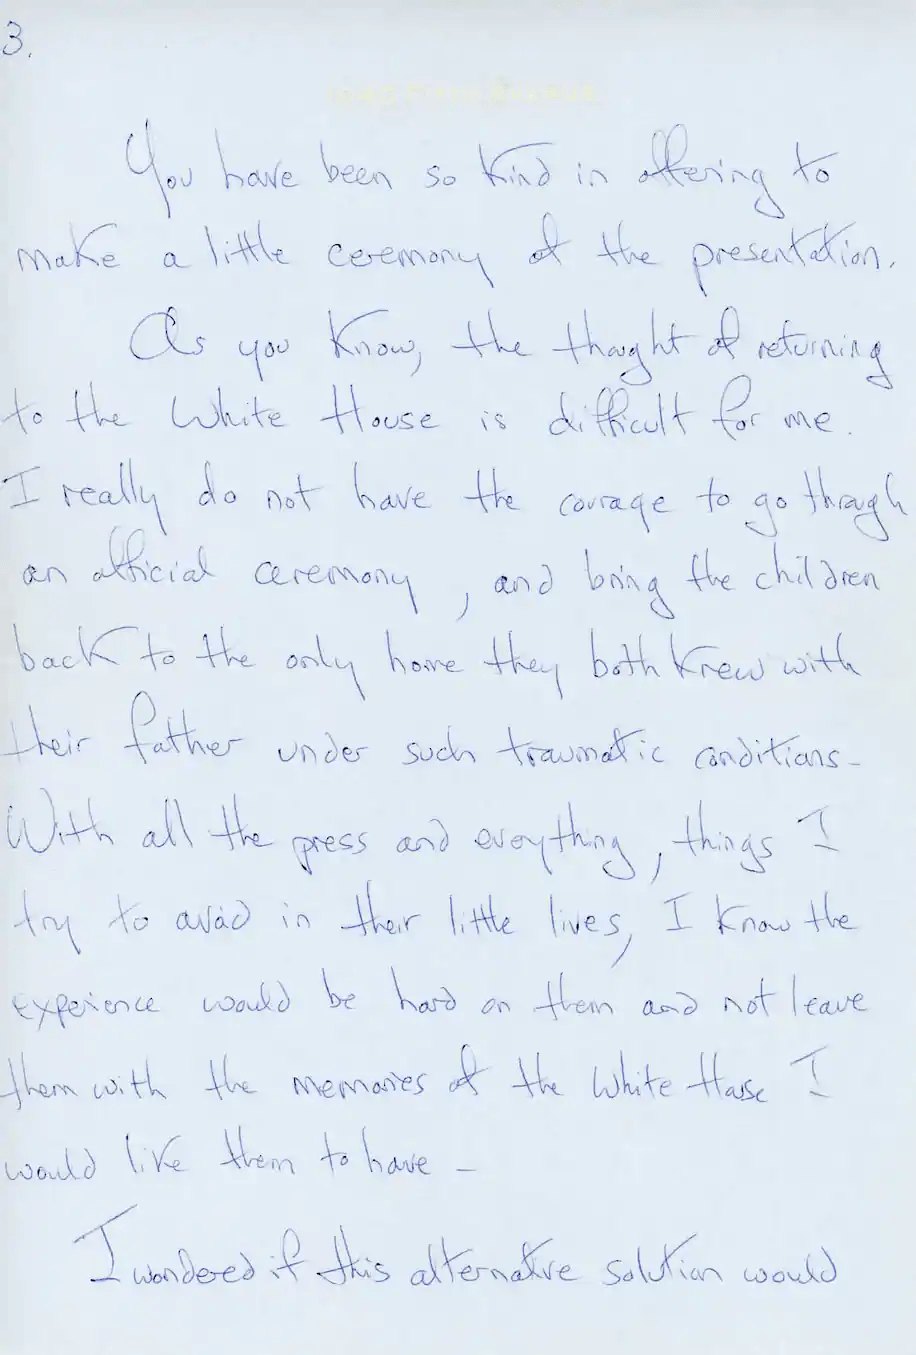 3.
1040 FIFTH AVENUE
You have been so kind in offering to
make a little ceremony of the presentation.
As you know, the thought of returning
to the White House is difficult for me.
I really do not have the courage to go through
an official ceremony, and bring the children
back to the only home they both knew with
their father under such traumatic conditions -
With all the press and everything, things I
try to avoid in their little lives, I know the
experience would be hard on them and not leave
them with the memories of the White House I
would like them to have -
I wondered if this alternative solution would